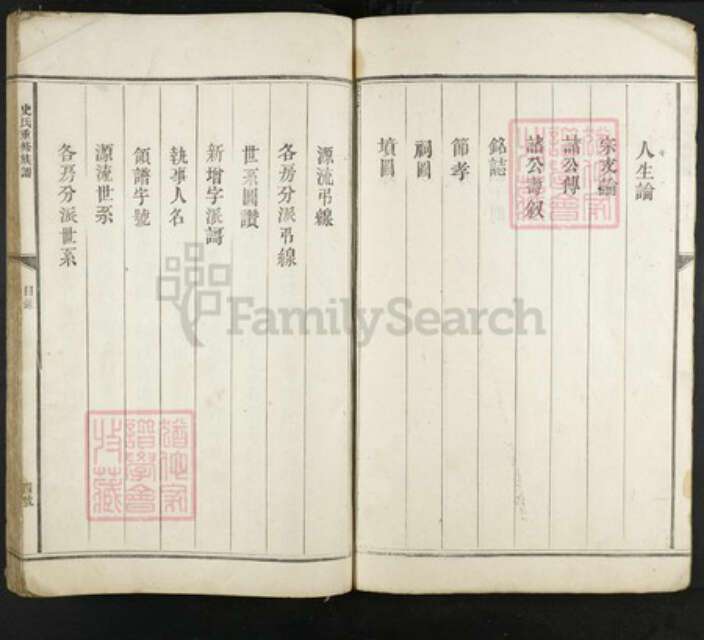 人生論
宗支論
諸公傳
諸公壽叙
銘誌
節孝
祠圖
墳圖
源流弔線
各房分派弔線
世系圖讚
新增字派謌
執事人名
領譜字號
源流世系
各房分派世系
史氏重修族譜
目錄
FamilySearch